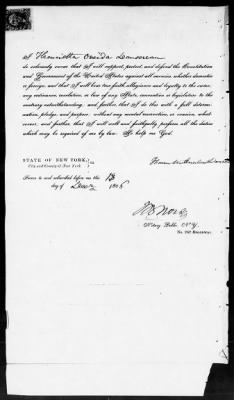 I Henrietta
do solemnly swear that I will support, protect, and defend the Constitution
and Government of the United States against all enemies, whether domestic
or foreign; and that I will bear true faith, allegiance and loyalty to the same,
any ordinance, resolution, or law of any State, convention or legislature to the
contrary notwithstanding; and further, that I do this with a full determi-
nation, pledge, and purpose, without any mental reservation or evasion what-
ever; and further, that I will well and faithfully perform all the duties
which may be required of me by law. So help me God.
STATE OF NEW YORK, } ss.
City and County of New York
Sworn to and subscribed before me this 13
day of 186
Notary Public N.Y.
No. 242 BROADWAY.